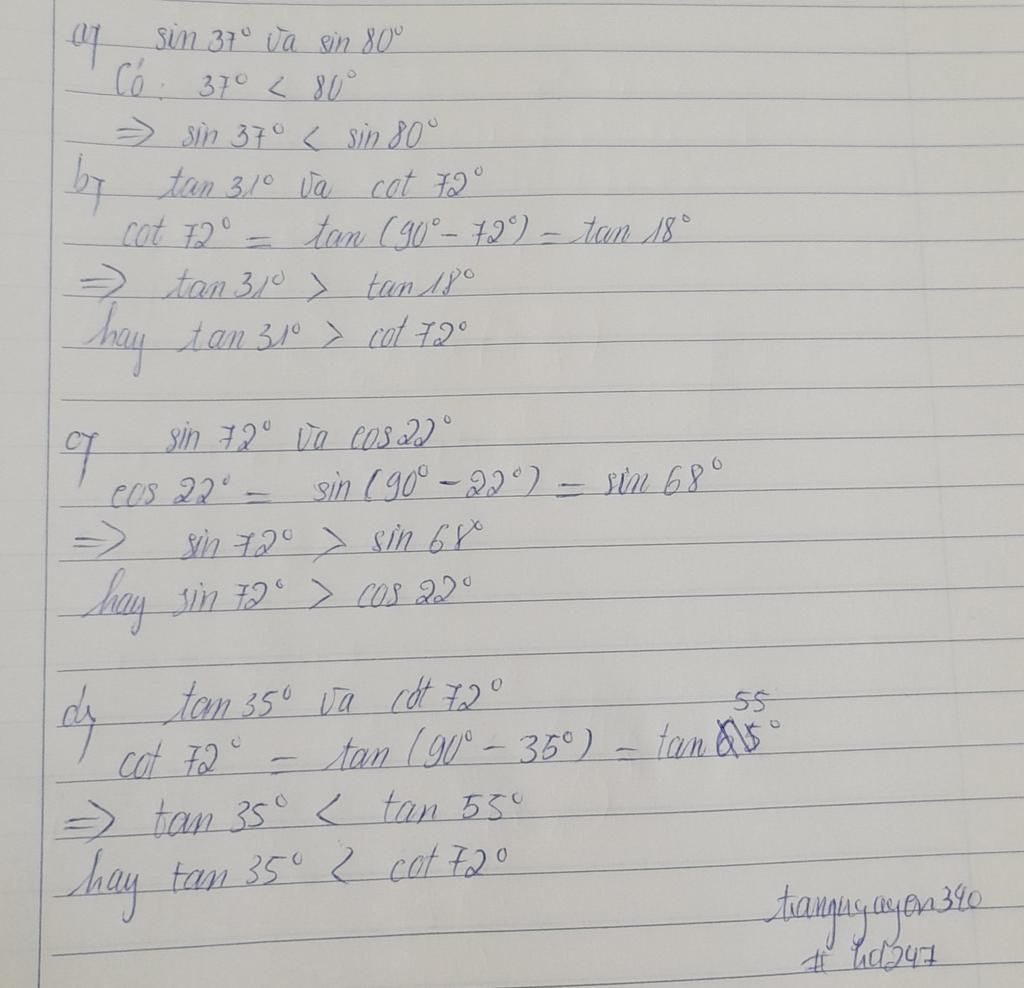 a) sin 37° và sin 80°
Có: 37° < 80°
=> sin 37° < sin 80°
b) tan 31° và cot 72°
cot 72° = tan (90° - 72°) = tan 18°
=> tan 31° > tan 18°
hay tan 31° > cot 72°
c) sin 72° và cos 22°
cos 22° = sin (90° - 22°) = sin 68°
=> sin 72° > sin 68°
hay sin 72° > cos 22°
d) tan 35° và cot 72°
cot 72° = tan (90° - 35°) = tan 55°
=> tan 35° < tan 55°
hay tan 35° < cot 72°
trangnguyen340
# hd247